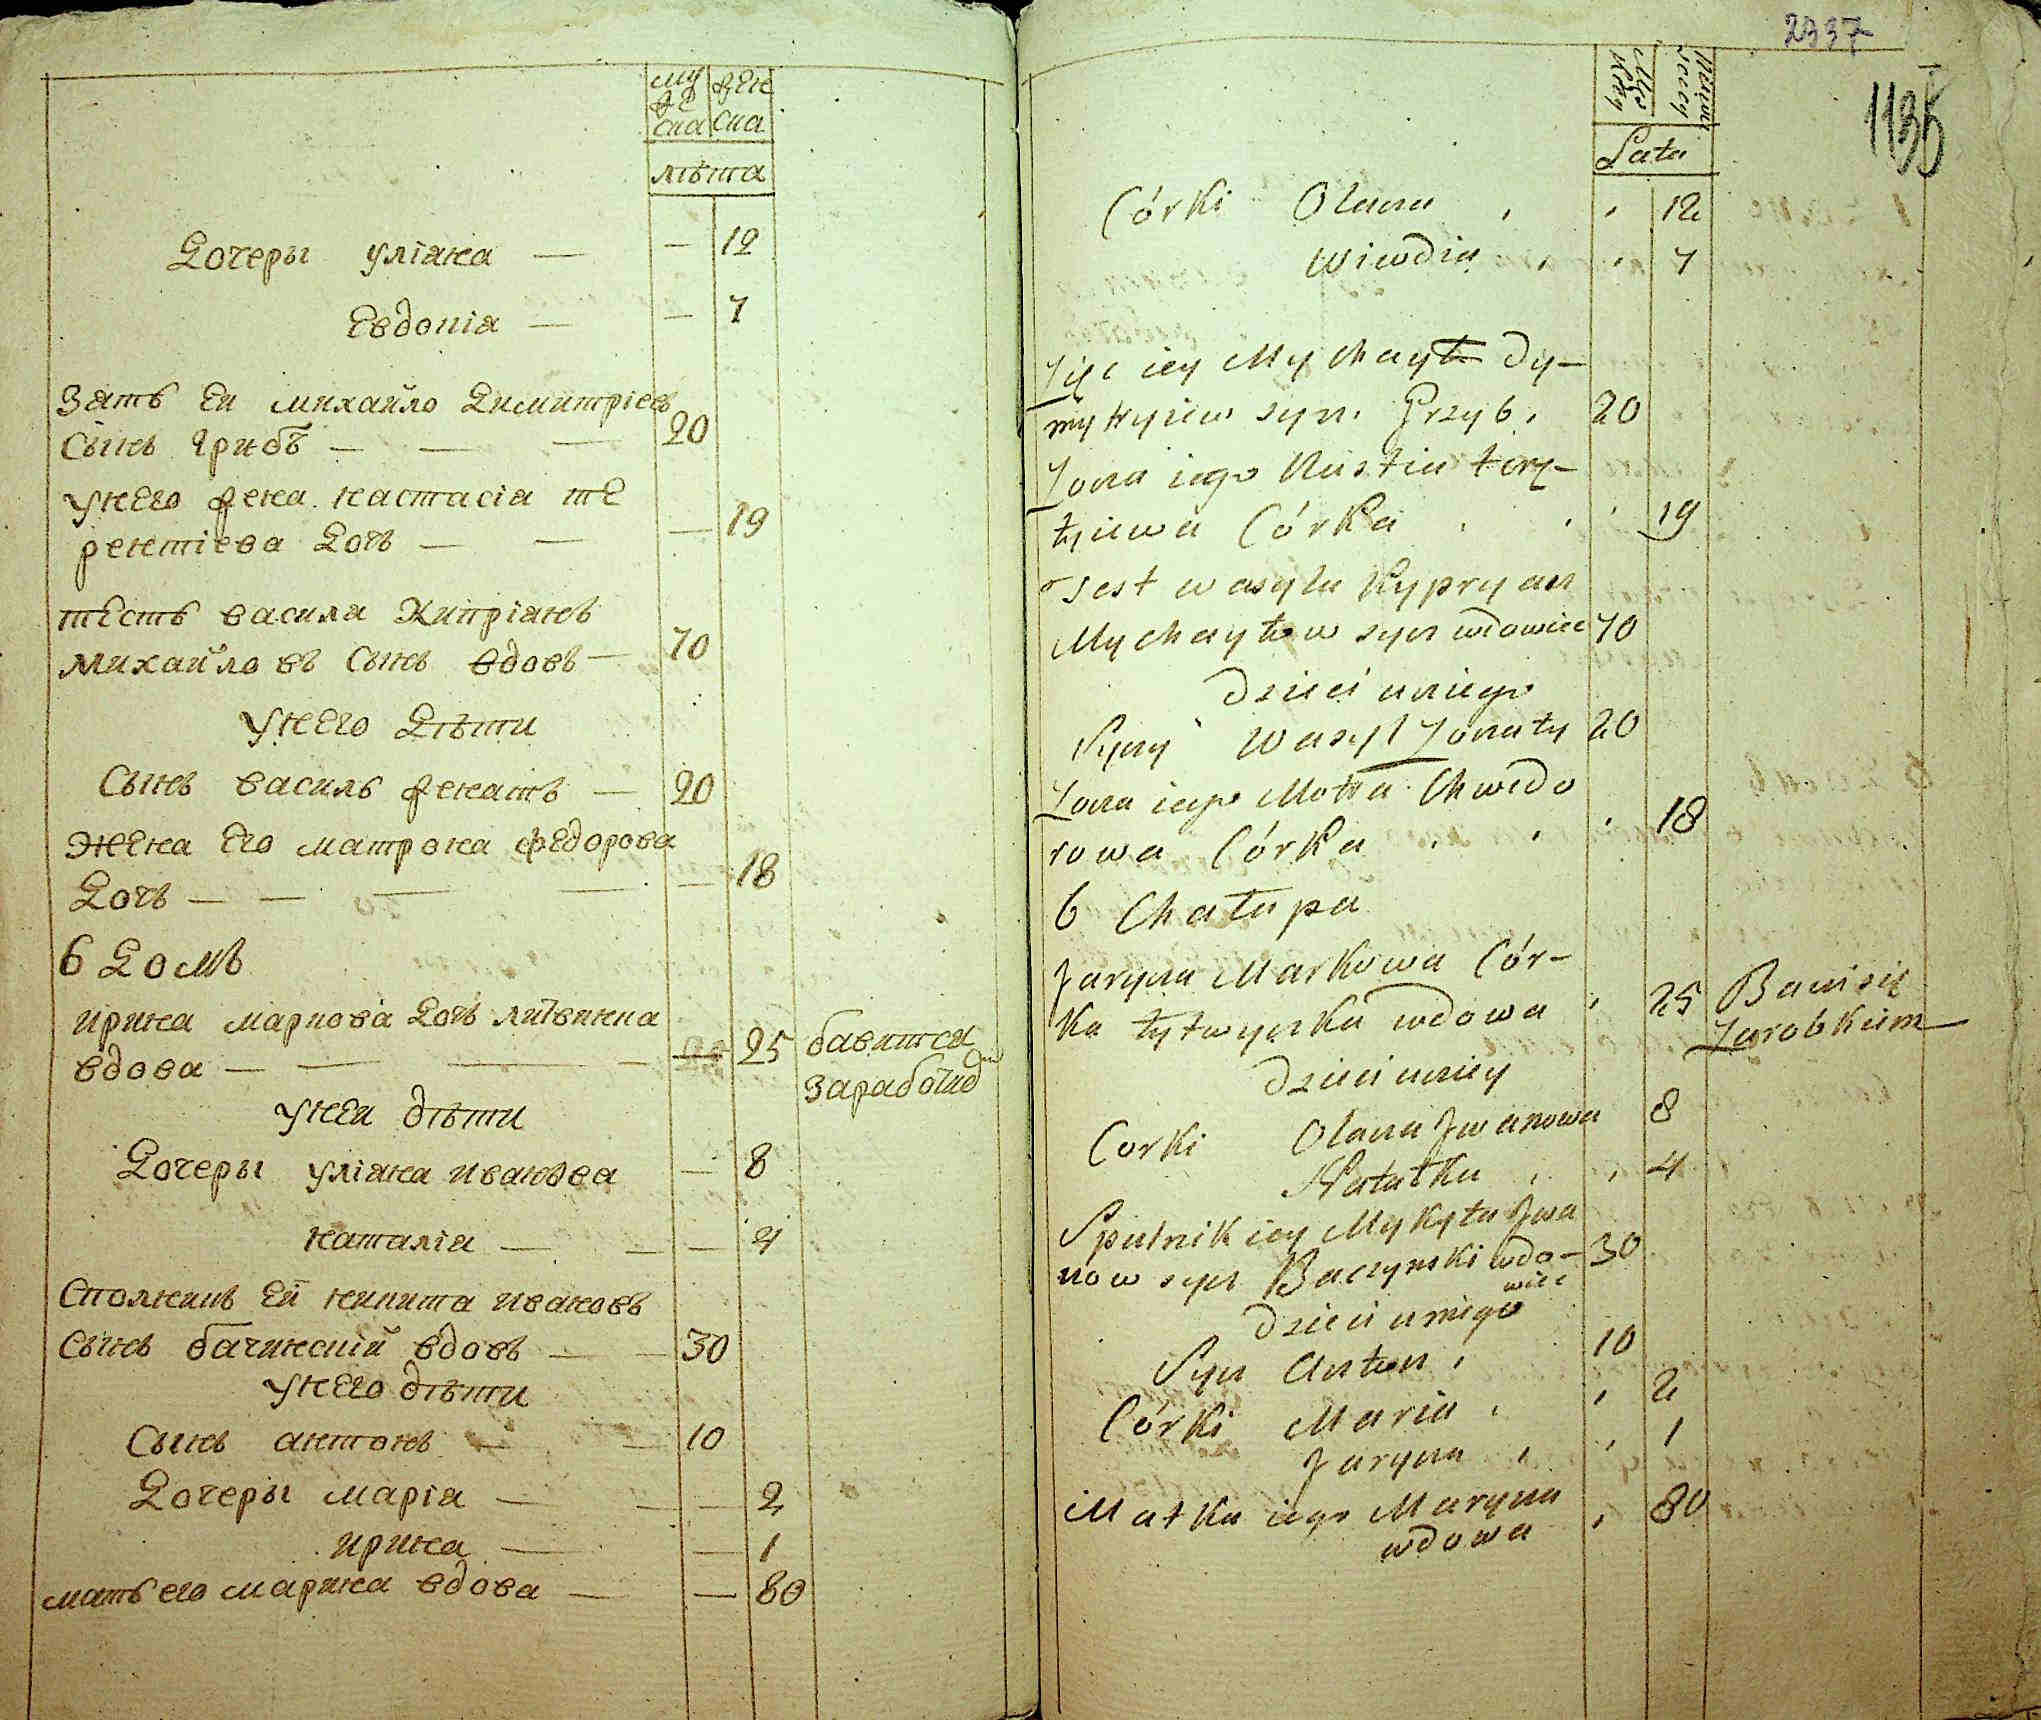 му
же
ска
жен
ска
лѣта
Дочеры Уліана — — 12
Евдокія — — 7
Зять Еи михайло Димитріев
Сынъ Грибъ — — — 20
У него жена настасіа те
рентіева Дочь — — — 19
тесть васила Кипріанъ
михайловъ Сынъ вдовъ — 70
У него Дѣти
Сынъ василь женатъ — 20
жена Его матрона федорова
Дочь — — — — — 18
6 Домъ
ирина маркова Дочь литвинка
вдова — — — — 25 бавится
заработко
У неи дѣти
Дочеры уліана иванова — 8
наталіа — — — 4
Сполникъ Ей никита ивановъ
Сынъ бачинскій вдовъ — — 30
У него дѣти
Сынъ антонъ — — 10
Дочеры маріа — — — 2
ирина — — 1
мать его марина вдова — — 80
2337
1135
Męz
kiey
Lata
Córki Olana , , 12
Wiwdia , , 7
Zięć iey Mychayło Dy-
mytryiew syn Grzyb , 20
Zona iego Nastia tery-
tyiewa Córka . , , 19
Test wasyla Kypryan
Mychayłow syn wdowiec 70
Dzieci uniego
Syny Wasyl Zonaty 20
Zona iego Motra Chwedo
rowa Córka , , , 18
6 Chałupa
Jaryna Markowa Cór-
ka łytwynka wdowa , 25 Bawi się
Zarobkiem
Dzieci uniey
Corki Olana Jwanowa 8
Natałka , , 4
Spulnik iey Mykyta Jwa
now syn Baczynski wdo- 30
wiec
Dzieci uniego
Syn Anton , 10
Córki Maria , , 2
Jaryna , , 1
Matka iego Maryna , 80
wdowa